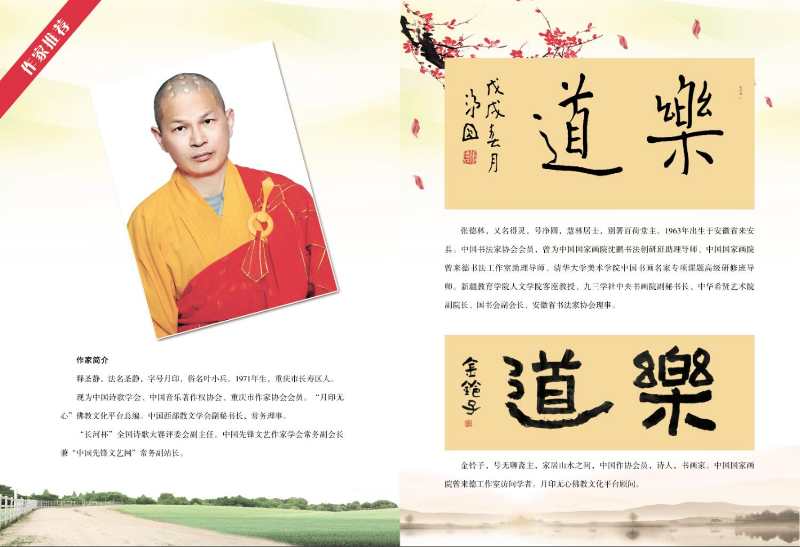 作家推荐
作家简介
释圣静，法名圣静，字号月印，俗名叶小兵。1971年生，重庆市长寿区人。
现为中国诗歌学会、中国音乐著作权协会、重庆市作家协会会员。“月印无
心”佛教文化平台总编。中国西部散文学会副秘书长、常务理事。
“长河杯”全国诗歌大赛评委会副主任。中国先锋文艺作家学会常务副会长
兼“中国先锋文艺网”常务副站长。
樂道
戊戌春月
净圆
张德林，又名得灵，号净圆，慧林居士，别署百荷堂主。1963年出生于安徽省来安
县。中国书法家协会会员，曾为中国国家画院沈鹏书法创研班助理导师、中国国家画院
曾来德书法工作室助理导师、清华大学美术学院中国书画名家专项课题高级研修班导
师。新疆教育学院人文学院客座教授、九三学社中央书画院副秘书长、中华希贤艺术院
副院长、国书会副会长、安徽省书法家协会理事。
樂道
金铃子
金铃子，号无聊斋主，家居山水之间，中国作协会员，诗人、书画家。中国国家画
院曾来德工作室访问学者。月印无心佛教文化平台顾问。